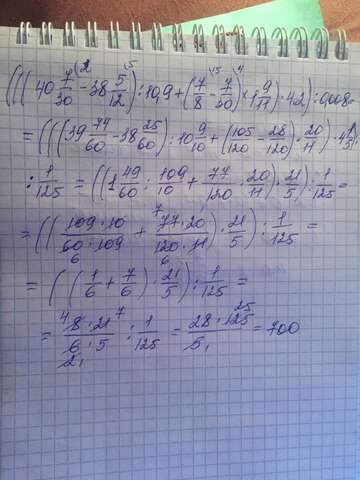 (((40 7/30 - 38 5/12) : 10,9 + (7/8 - 7/30) · 1 9/11) · 4,2) : 0,008 =
= (((39 74/60 - 38 25/60) : 10 9/10 + (105/120 - 28/120) · 20/11) · 4 1/5) :
: 1/125 = ((1 49/60 : 109/10 + 77/120 · 20/11) · 21/5) : 1/125 =
= ((109 · 10/60 · 109 + 77 · 20/120 · 11) · 21/5) : 1/125 =
= ((1/6 + 7/6) · 21/5) : 1/125 =
= 8 · 21/6 · 5 : 1/125 = 28 · 125/5 = 700